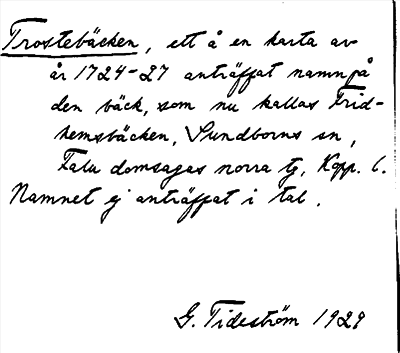 Trostebäcken, ett å en karta av
år 1724-27 anträffat namn på
den bäck, som nu kallas Frid-
hemsbäcken, Sundborns sn,
Falu domsagas norra tg, Kopp. l.
Namnet ej anträffat i tal.
G. Tideström 1929